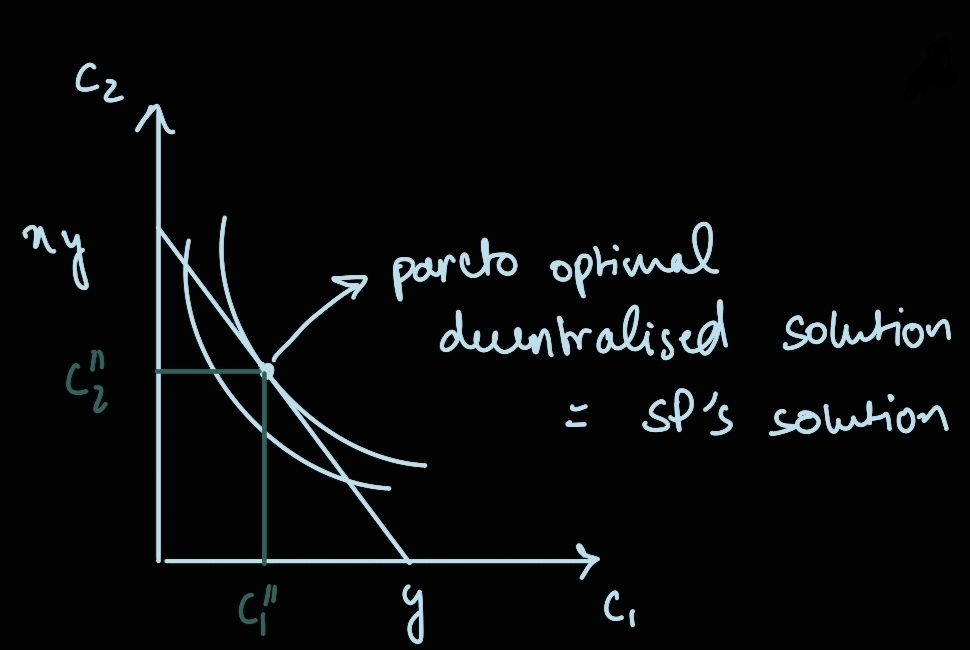 C₂
ny
pareto optimal
decentralised solution
= SP's solution
C₂"
C₁"
y
C₁